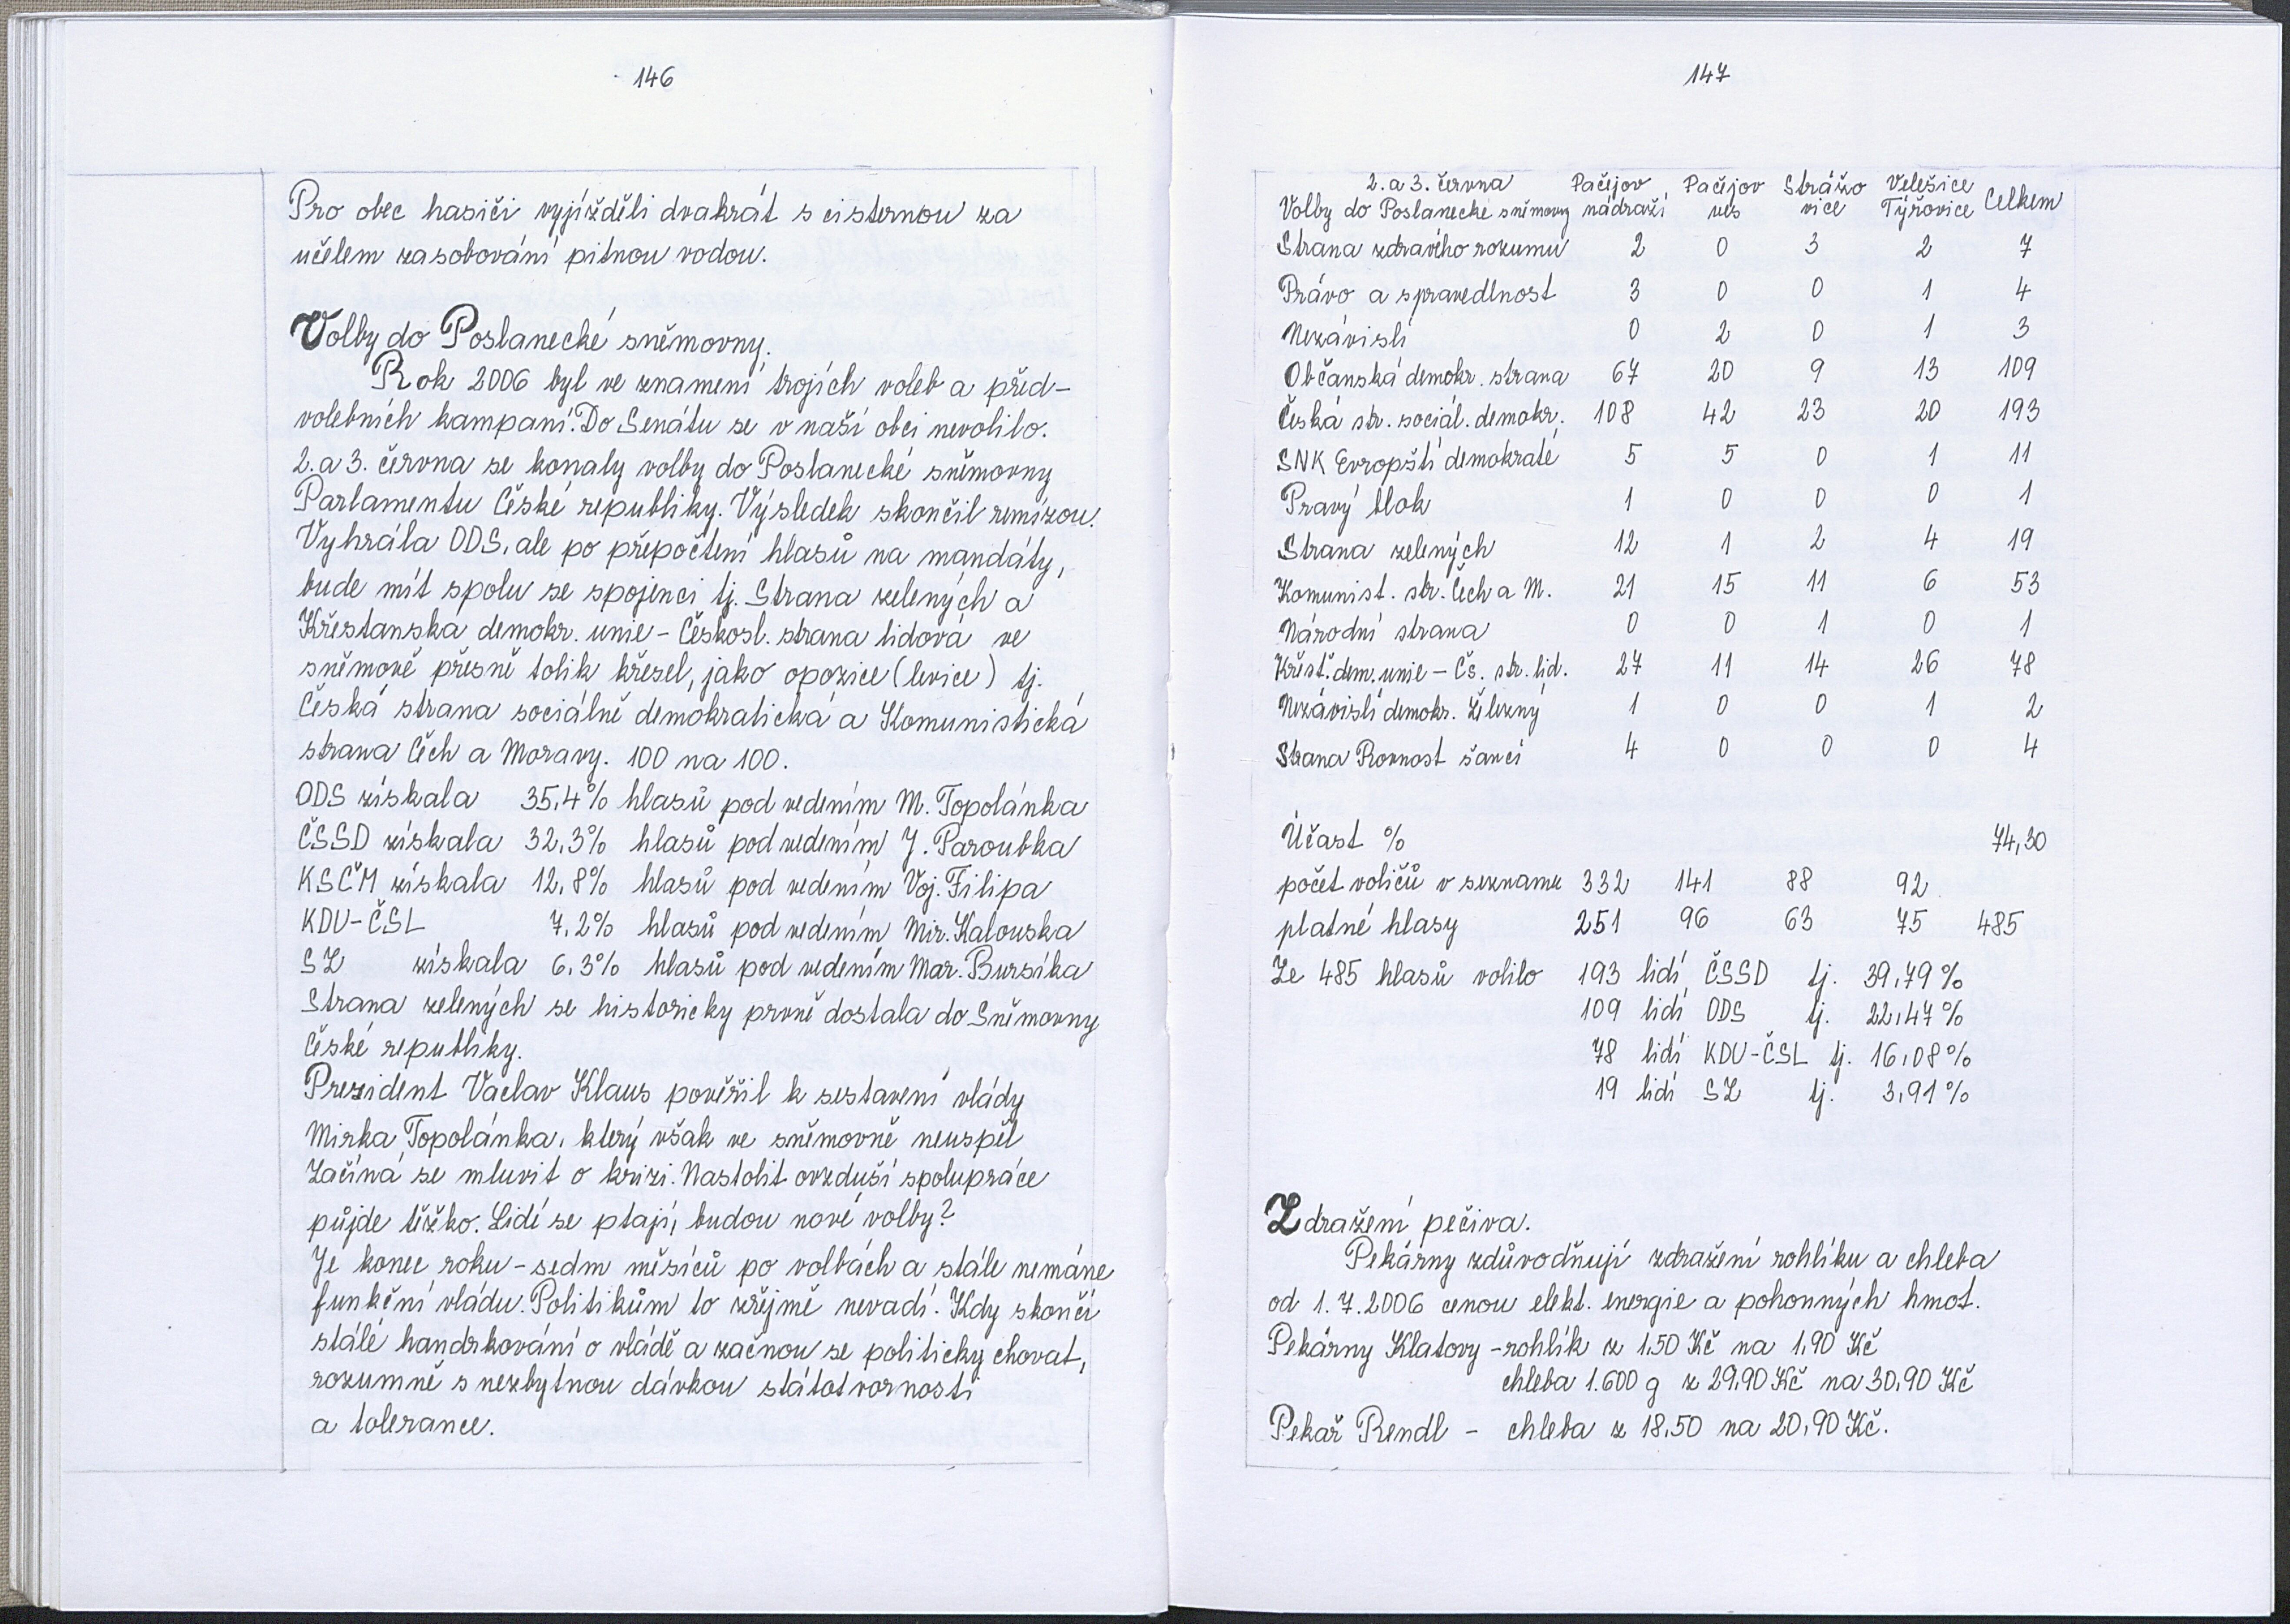 146
Pro obec hasiči vyjížděli dvakrát s cisternou za
učelem zasobování pitnou vodou.
Volby do Poslanecké sněmovny.
Rok 2006 byl ve znamení trojích voleb a před-
volebních kampaní. Do Senátu se v naší obci nevolilo.
2. a 3. června se konaly volby do Poslanecké sněmovny
Parlamentu České republiky. Výsledek skončil remízou.
Vyhrála ODS, ale po přepočtení hlasů na mandáty,
bude mít spolu se spojenci tj. Strana zelených a
Křestanska demokr. unie - Českosl. strana lidová ve
sněmově přesně tolik křesel, jako opozice (levice) tj.
Česká strana sociálně demokratická a Komunistická
strana Čech a Moravy. 100 na 100.
ODS získala 35,4% hlasů pod vedením M. Topolánka
ČSSD získala 32,3% hlasů pod vedením J. Paroubka
KSČM získala 12,8% hlasů pod vedením Voj. Filipa
KDU-ČSL 7,2% hlasů pod vedením Mir. Kalouska
SZ získala 6,3% hlasů pod vedením Mar. Bursíka
Strana zelených se historicky prvně dostala do Sněmovny
České republiky.
Prezident Václav Klaus pověřil k sestavení vlády
Mirka Topolánka, který však ve sněmovně neuspěl
Začíná se mluvit o krizi. Nastolit ovzduší spolupráce
půjde těžko. Lidé se ptají, budou nové volby?
Je konec roku - sedm měsíců po volbách a stále nemáme
funkční vládu. Politikům to zřejmě nevadí. Kdy skončí
stálé handrkování o vládě a začnou se politicky chovat,
rozumně s nezbytnou dávkou státotvornosti
a tolerance.
147
2. a 3. června Pačejov Pačejov Strážo Velešice
Volby do Poslanecké sněmovny nádraží ves vice Týřovice Celkem
Strana zdravého rozumu 2 0 3 2 7
Právo a spravedlnost 3 0 0 1 4
Nezávislí 0 2 0 1 3
Občanská demokr. strana 67 20 9 13 109
Česká str. sociál. demokr. 108 42 23 20 193
SNK Evropští demokraté 5 5 0 1 11
Pravý blok 1 0 0 0 1
Strana zelených 12 1 2 4 19
Komunist. str. Čech a M. 21 15 11 6 53
Národní strana 0 0 1 0 1
Křesť. dem. unie - Čs. str. lid. 27 11 14 26 78
Nezávislí demokr. Železný 1 0 0 1 2
Strana Rovnost šancí 4 0 0 0 4
Účast % 74,30
počet voličů v seznamu 332 141 88 92
platné hlasy 251 96 63 75 485
Ze 485 hlasů volilo 193 lidí ČSSD tj. 39,79%
109 lidí ODS tj. 22,47%
78 lidí KDU-ČSL tj. 16,08%
19 lidí SZ tj. 3,91%
Zdražení pečiva.
Pekárny zdůvodňují zdražení rohlíku a chleba
od 1.7.2006 cenou elekt. energie a pohonných hmot.
Pekárny Klatovy - rohlík z 1,50 Kč na 1,90 Kč
chleba 1.600 g z 29,90 Kč na 30,90 Kč
Pekař Rendl - chleba z 18,50 na 20,90 Kč.